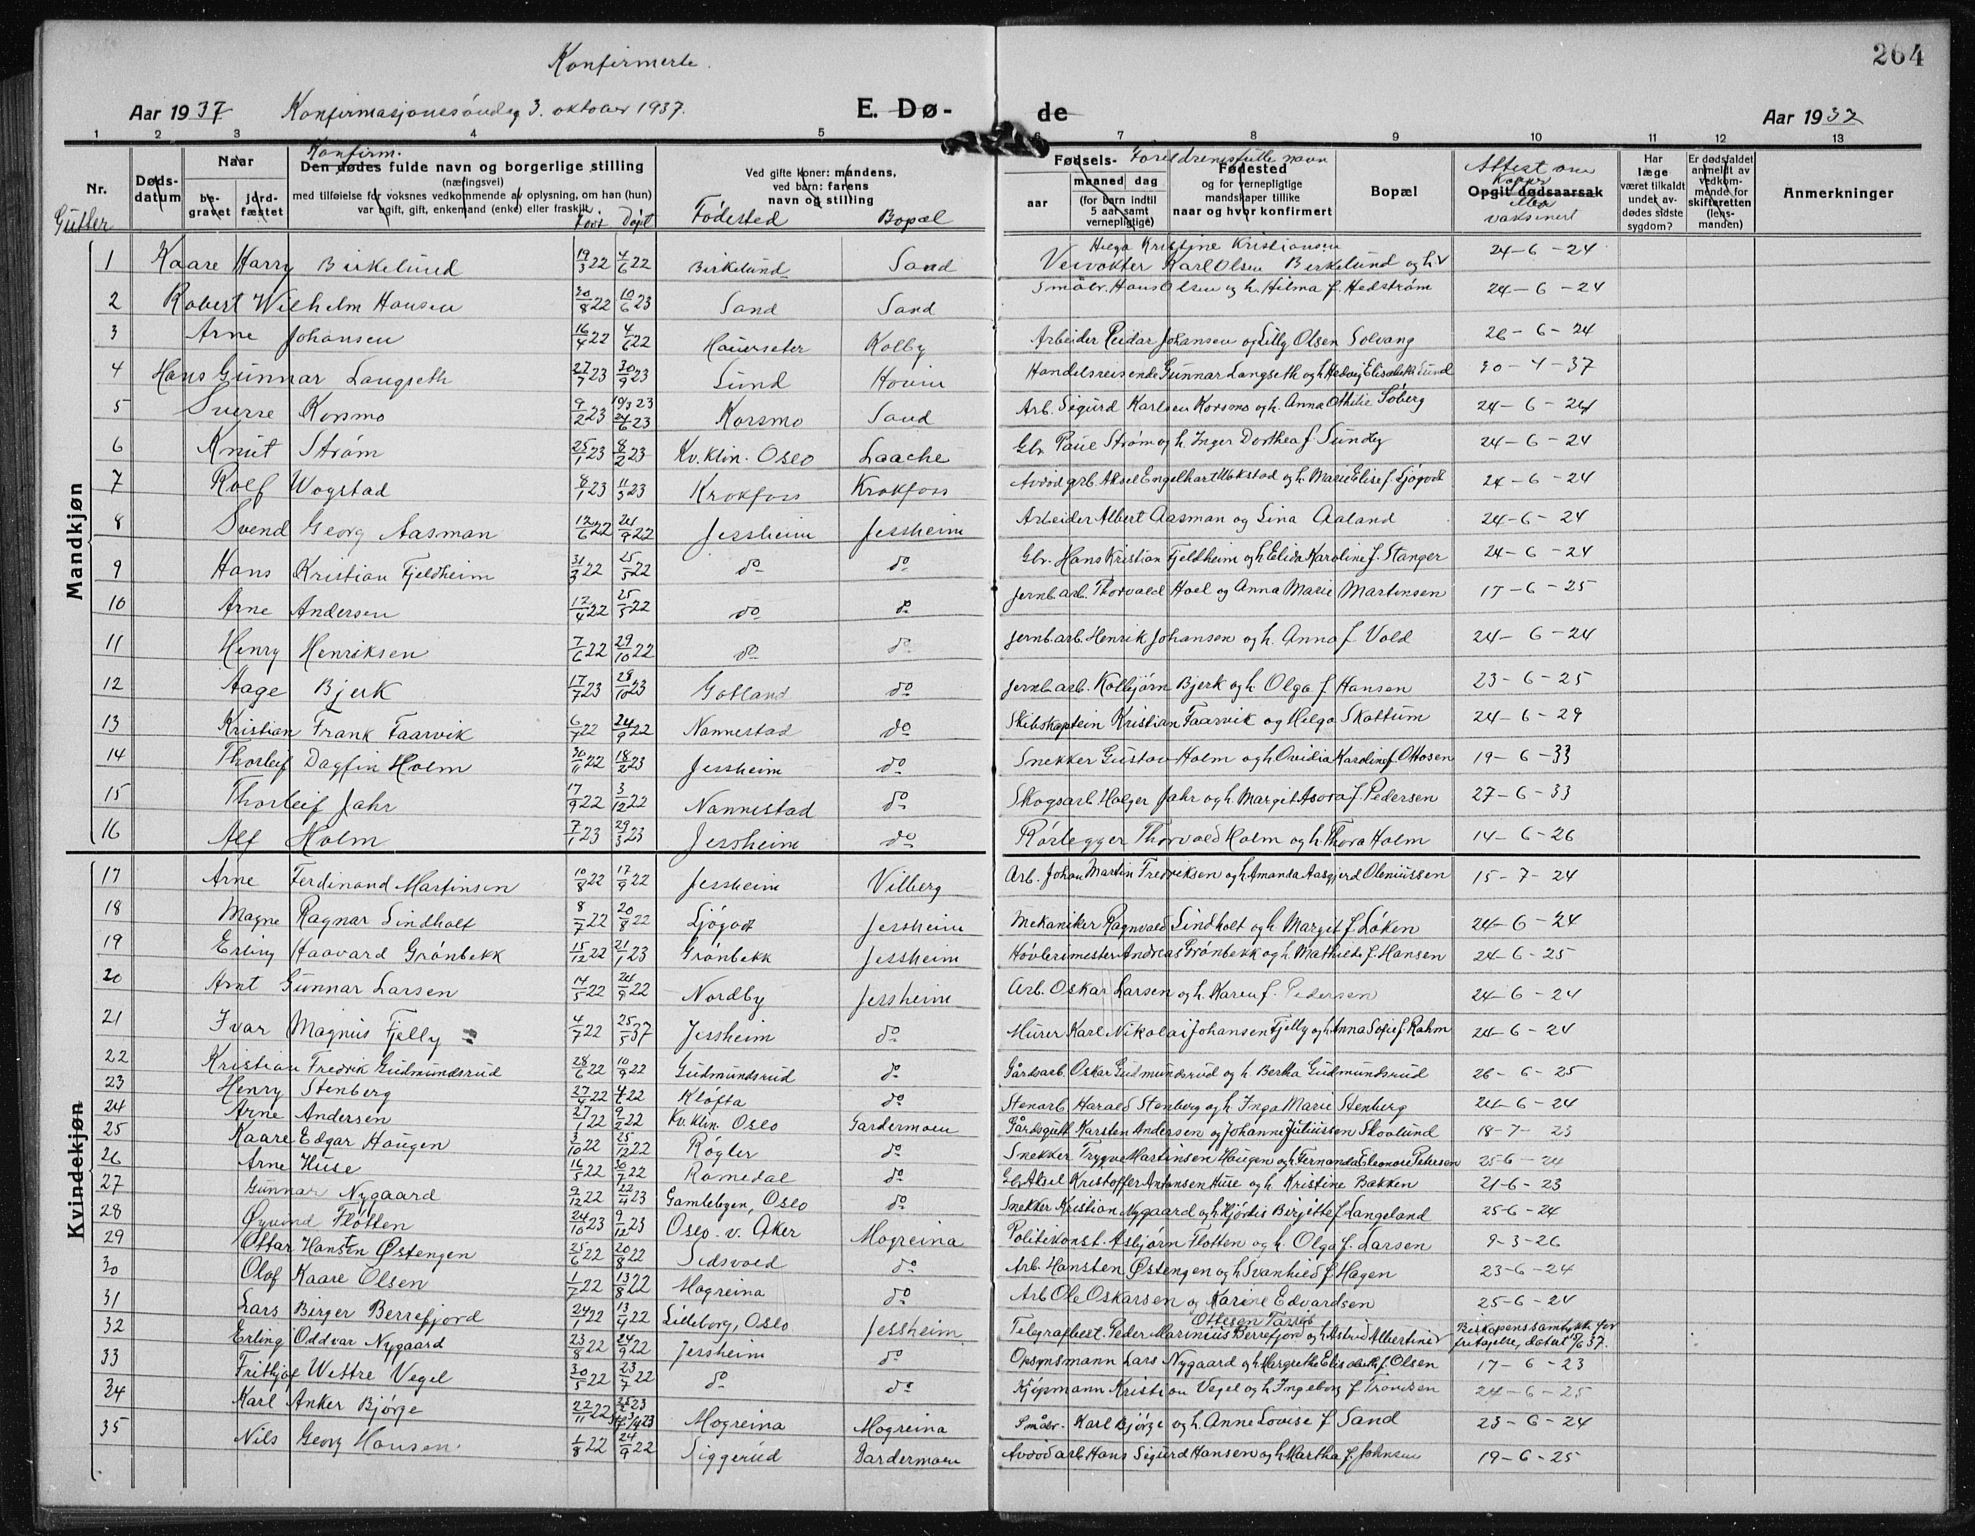 264
Konfirmerte.
Aar 1937 Konfirmasjonssöndag 3. oktober 1937. E. Dø- de Aar 1937
1 2 3 4 5 6 7 8 9 10 11 12 13
Nr. Døds-datum Naar be-gravet jord-fæstet Konfirm. Den dødes fulde navn og borgerlige stilling (næringsvei) med tilføielse for voksnes vedkommende av oplysning, om han (hun) var ugift, gift, enkemand (enke) eller fraskilt Født Døpt Ved gifte koner: mandens, ved barn: farens navn og stilling Fødested Bopæl Fødsels- aar maaned dag (for barn indtil 5 aar samt vernepligtige) Foreldrenes fulle navn Fødested og for vernepligtige mandskaper tillike naar og hvor konfirmert Bopæl Attest om vaksinert Opgit dødsaarsak Har læge været tilkaldt under av-dødes sidste sygdom? Er dødsfaldet anmeldt av vedkom-mende for skifteretten (lens-manden) Anmerkninger
Gutter
Mandkjøn
1 Kaare Harry Birkelund 19/3 22 4/6 22 Birkelund Sand Veivokter Karl Olsen Birkelund og h. Helga Kristine Kristiansen 24-6-24
2 Robert Wilhelm Hansen 30/8 22 10/6 23 Sand Sand Småbr. Hans Olsen og h. Hilma f. Hedstrøm 24-6-24
3 Arne Johansen 16/4 22 4/6 22 Hauerseter Kolby Arbeider Reidar Johansen og Lilly Olsen Solvang 26-6-24
4 Hans Gunnar Langseth 27/7 23 30/9 23 Lund Hovin Handelsreisende Gunnar Langseth og h. Hedvig Elisabeth Lund 30-4-37
5 Sverre Korsmo 9/2 23 24/6 23 Korsmo Sand Arb. Sigurd Karlsen Korsmo og h. Anna Othilie Söberg 24-6-24
6 Knut Strøm 25/1 23 8/2 23 Kv.klin. Oslo Laache Gbr. Paul Strøm og h. Inger Dorthea f. Sundby 24-6-24
7 Rolf Wogstad 8/1 23 11/3 23 Krokfoss Krokfoss Avdød grb. Aksel Engelhart Wokstad og h. Marie Elise f. Ljøgodt 24-6-24
8 Svend Georg Aasman 12/6 22 24/9 22 Jessheim Jessheim Arbeider Albert Aasman og Lina Aaland 24-6-24
9 Hans Kristian Fjeldheim 31/3 22 25/5 22 do do Gbr. Hans Kristian Fjeldheim og h. Elida Karoline f. Stanger 24-6-24
10 Arne Andersen 17/4 22 25/5 22 do do Jernb.arb. Thorvald Hoel og Anna Marie Martinsen 17-6-25
11 Henry Henriksen 7/6 22 29/10 22 do do Jernb.arb. Henrik Johansen og h. Anna f. Vold 24-6-24
12 Aage Bjerk 17/7 23 28/10 23 Gotland do Jernb.arb. Kolbjørn Bjerk og h. Olga f. Hansen 23-6-25
13 Kristian Frank Faarvik 6/7 22 24/9 22 Nannestad do Skibskaptein Kristian Faarvik og Helga Skattum 24-6-29
14 Thorleif Dagfin Holm 30/11 22 18/2 23 Jessheim do Snekker Gustav Holm og h. Ovidia Karoline f. Ottosen 19-6-33
15 Thorleif Jahr 17/9 22 3/12 22 Nannestad do Skogsarb. Holger Jahr og h. Margit Asora f. Pedersen 27-6-33
16 Alf Holm 7/1 23 29/3 23 Jessheim do Rørlegger Thorvald Holm og h. Thora Holm 14-6-26
Kvindekjøn
17 Arne Ferdinand Martinsen 10/8 22 17/9 22 Jessheim Vilberg Arb. Johan Martin Fredriksen og h. Amanda Aasgjerd Oleniussen 15-7-24
18 Magne Ragnar Lindholt 8/7 22 20/8 22 Ljøgodt Jessheim Mekaniker Ragnvald Lindholt og h. Margit f. Løken 24-6-24
19 Erling Haavard Grønbekk 15/12 22 21/1 23 Grønbekk Jessheim Høvlerimester Andreas Grønbekk og h. Mathilde f. Hansen 24-6-25
20 Arnt Gunnar Larsen 14/5 22 24/9 22 Nordby Jessheim Arb. Oskar Larsen og h. Karen f. Pedersen 24-6-24
21 Ivar Magnus Fjelly 4/7 22 25/5 37 Jessheim do Murer Karl Nikolai Johansen Fjelly og h. Anna Sofie f. Rahm 24-6-24
22 Kristian Fredrik Gudmundsrud 28/6 22 10/9 22 Gudmundsrud do Gårdsarb. Oskar Gudmundsrud og h. Bertha Gudmundsrud 26-6-25
23 Henry Stenberg 27/4 22 4/7 22 Kløfta do Stenarb. Harald Stenberg og h. Inga Marie Stenberg 24-6-24
24 Arne Andersen 27/1 22 9/2 22 Kv.klin. Oslo Gardermoen Gårdsgutt Karsten Andersen og Johanne Juliussen Skovlund 18-7-23
25 Kaare Edgar Haugen 3/10 22 25/12 22 Røgler do Snekker Trygve Martinsen Haugen og h. Fernanda Eleonore Petersen 25-6-24
26 Arne Huse 16/5 22 30/7 22 Romedal do Gb. Aksel Kristoffer Antonsen Huse og h. Kristine Bakken 21-6-23
27 Gunnar Nygaard 9/12 22 22/4 23 Gamlebyen, Oslo do Snekker Kristian Nygaard og h. Hjørdis Birgitte f. Langeland 25-6-24
28 Øyvind Flotten 24/10 23 9/12 23 Oslo v. Aker Mogreina Politikonst. Asbjørn Flotten og h. Olga f. Larsen 9-3-26
29 Ottar Hansten Østengen 25/6 22 20/8 22 Eidsvold do Arb. Hansten Østengen og h. Svanhild f. Hagen 23-6-24
30 Olof Kaare Olsen 1/7 22 13/8 22 Mogreina do Arb Ole Oskarsen og Karine Edvardsen 25-6-24
31 Lars Birger Berrefjord 24/1 22 13/4 22 Lilleborg, Oslo Jessheim Telegrafbest. Peder Marinius Berrefjord og h. Astrid Albertine Ottesen Biskopens samtykke for fritagelse, datert 37.
32 Erling Oddvar Nygaard 23/8 22 24/9 22 Jessheim do Opsynsmann Lars Nygaard og h. Margrethe Elisabeth f. Olsen 17-6-23
33 Fritjof Westre Vegel 30/5 22 23/7 22 do do Kjøpmann Kristian Vegel og h. Ingeborg f. Trondsen 24-6-25
34 Karl Anker Bjørge 22/11 22 23 Mogreina Mogreina Småbr. Karl Bjørge og h. Anne Lovise f. Sand 23-6-24
35 Nils Georg Hansen 1/8 22 24/9 22 Siggerud Gardermoen Avdød arb Hans Sigurd Hansen og h. Martha f. Johnsen 19-6-25